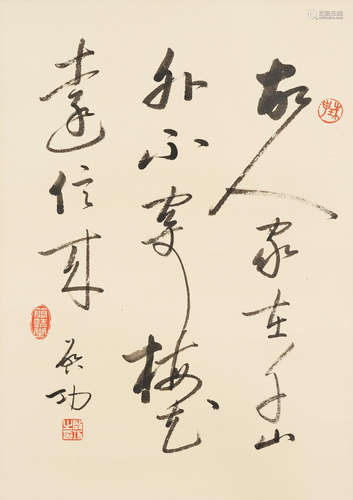 故人家在千山
外不寄梅花
远信来
启功